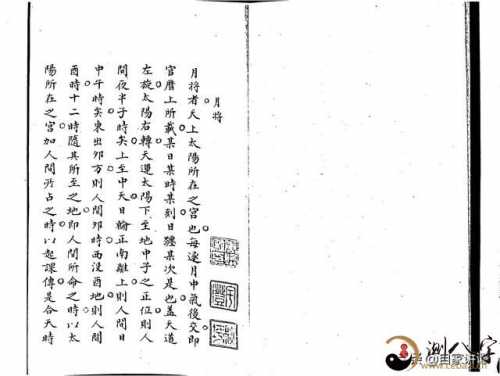 月将
月将者天上太陽所在之宫也每逐月中氣後交即
官曆上所載某日某時某刻日躔某次是也盖天道
左旋太陽右轉天運太陽下至地中子之正位則人
間夜半子時矣上至中天日輪正南離上則人間日
中午時矣東出卯方則人間卯時西没酉地則人間
酉時十二時隨其所至之地即人間所命之時以太
陽所在之宫加人間所占之時以起課傳是合天時
測八字